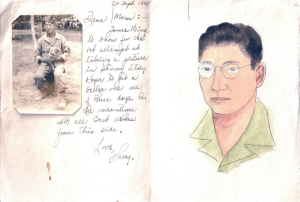 20 Sept.
Dear Mom:
Some thing
to show for the
1st attempt at
taking a picture
in
Hope to get a
better one one
of these days. For
the meantime
with all best wishes
from this side.
Love,
Harry.